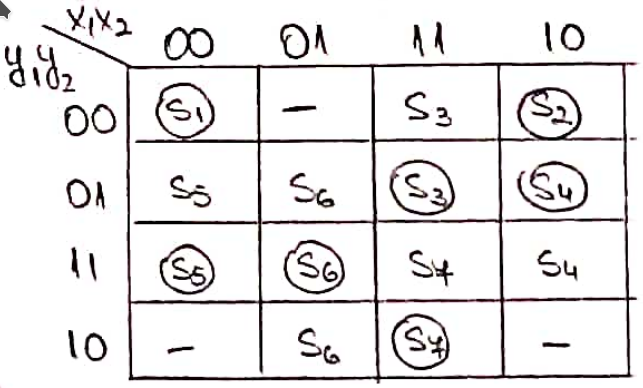 x₁x₂ 00 01 11 10
y₁y₂
00 S₁ — S₃ S₂
01 S₅ S₆ S₃ S₄
11 S₅ S₆ S₇ S₄
10 — S₆ S₇ —